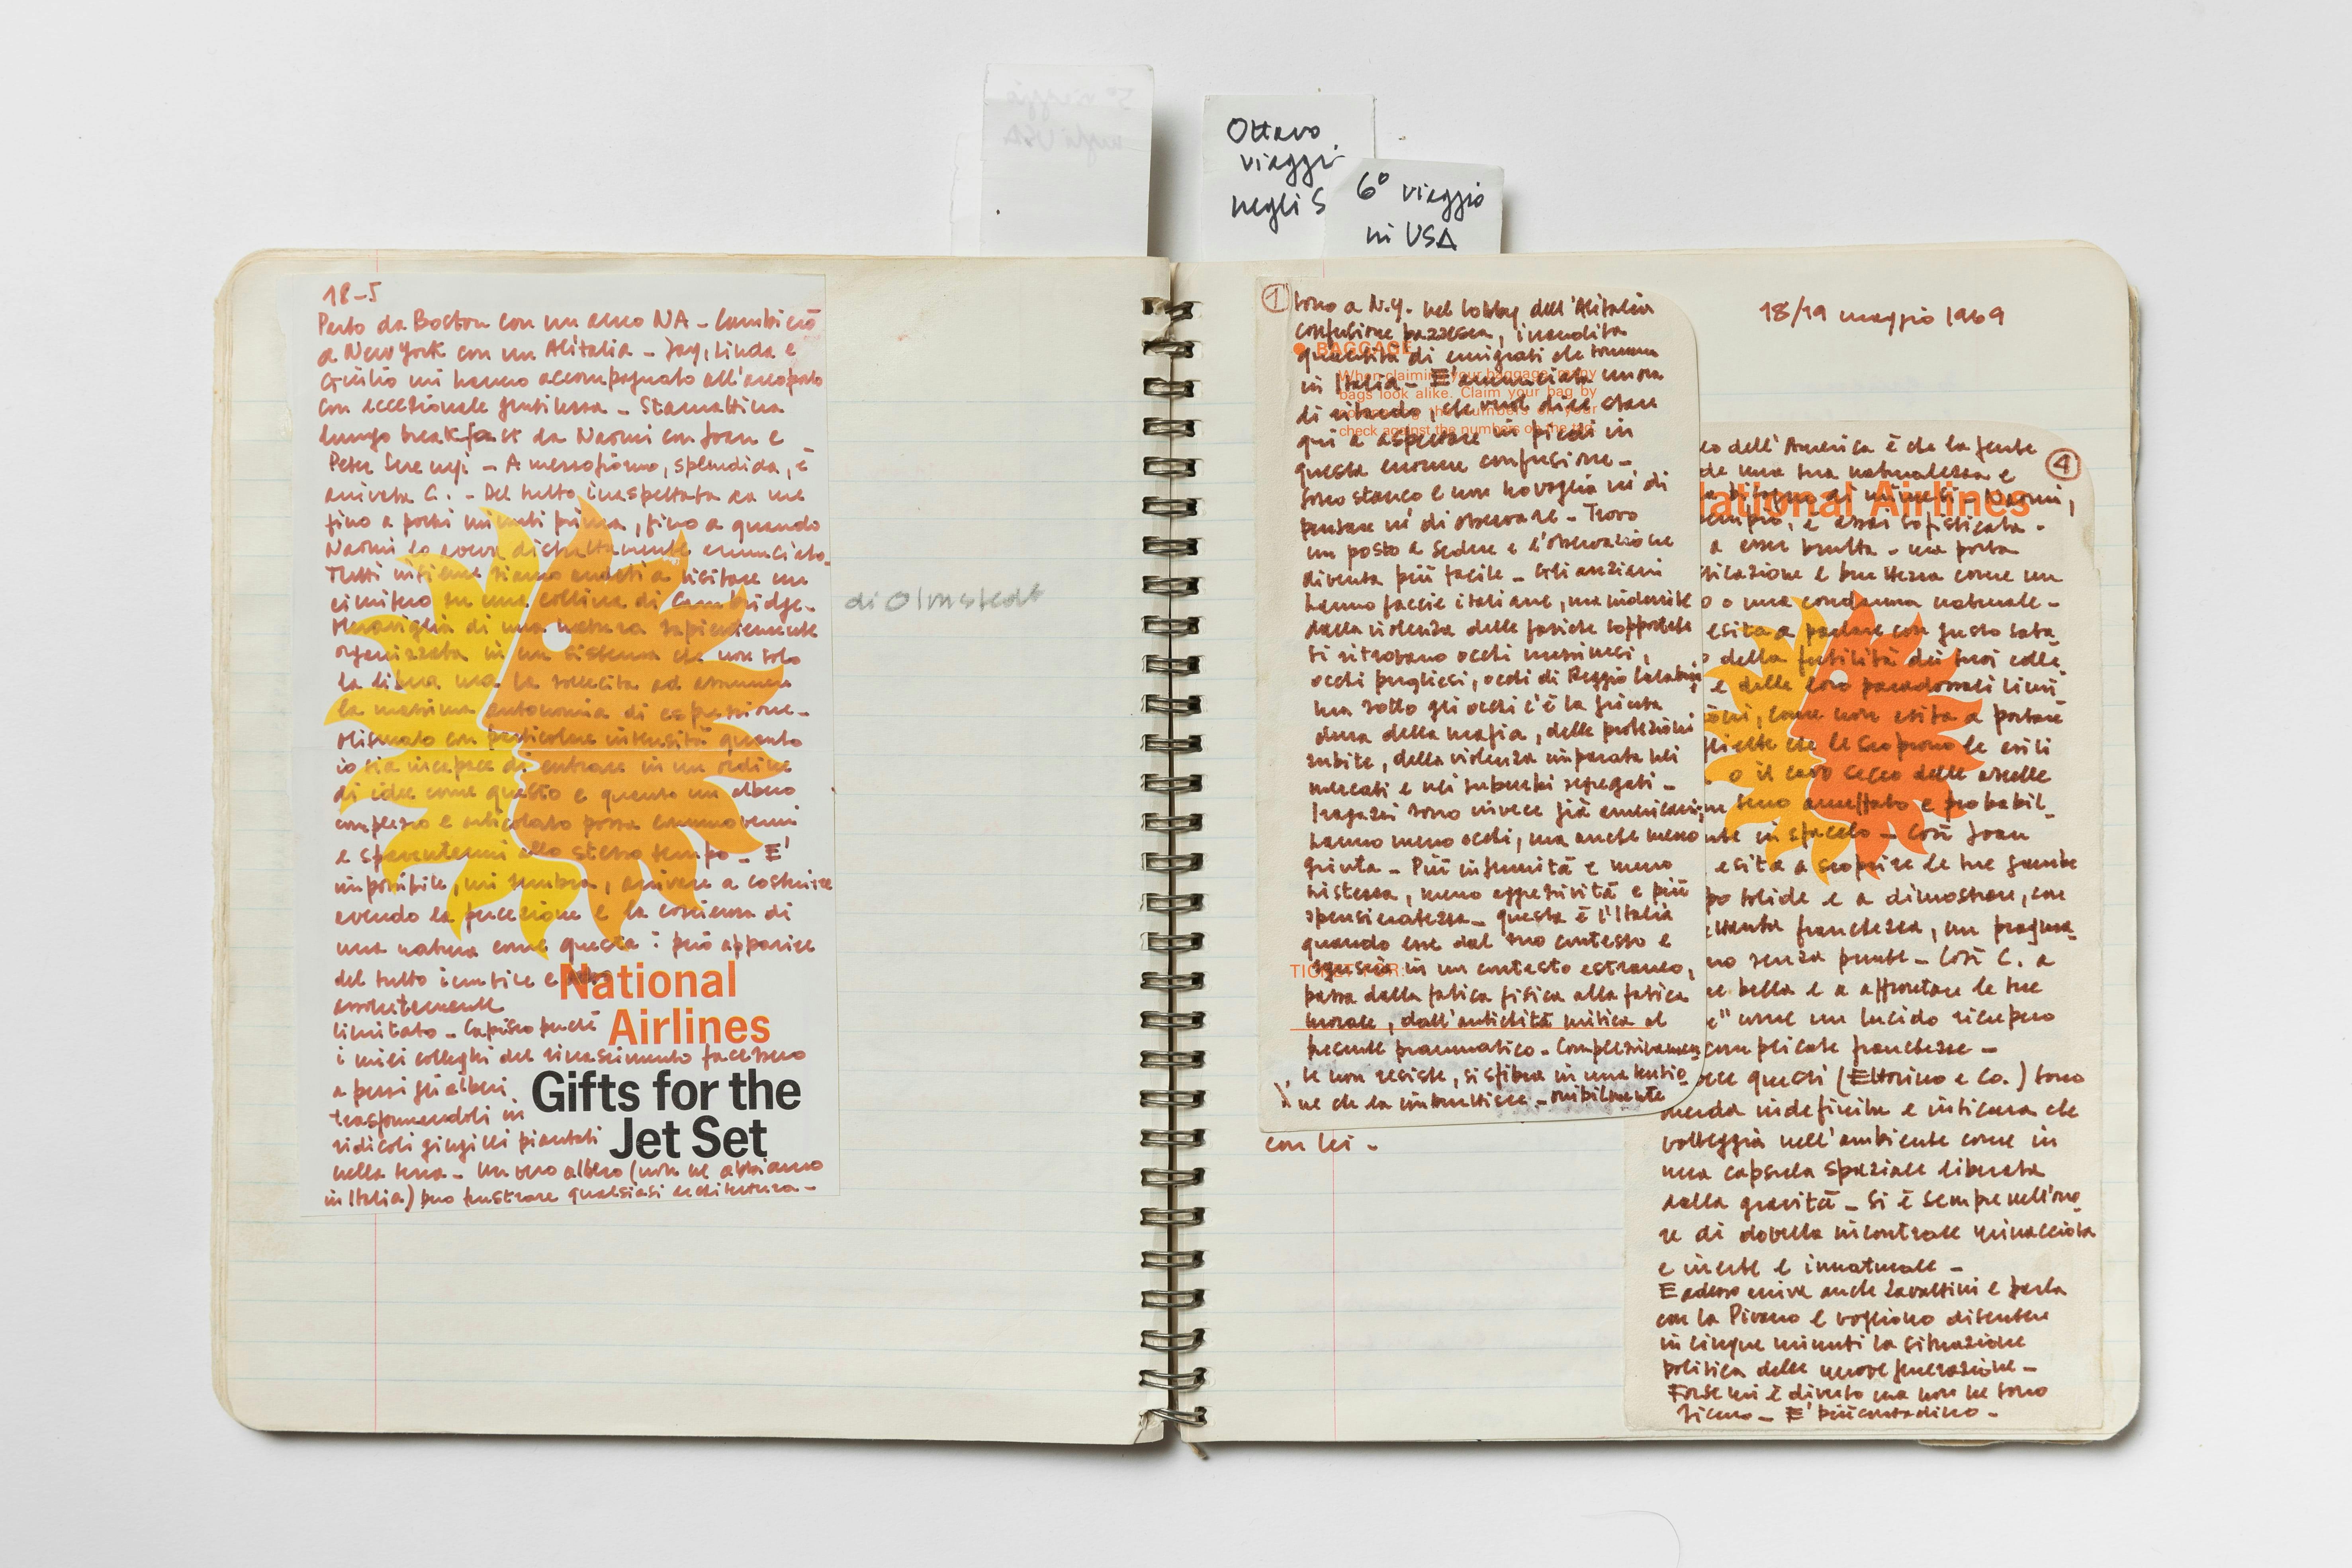 Ottavo
viaggi
negli S
6° viaggio
in USA
18-5
Parto da Boston con un aereo NA - Cambierò
a New York con un Alitalia - Jay, Linda e
Giulio mi hanno accompagnato all'aeroporto
con eccezionale gentilezza - Stamattina
lungo breakfast da Naomi con Joan e
Peter Serenyi - A mezzogiorno, splendida, è
arrivata C. - Del tutto inaspettata da me
fino a pochi minuti prima, fino a quando
Naomi lo aveva distrattamente annunciato.
Tutti insieme siamo andati a visitare un
cimitero su una collina di Cambridge.
di Olmstedt
Meraviglia di una natura sapientemente
organizzata in un sistema che non solo
la libera ma la sollecita ad assumere
la massima autonomia di espressione -
con particolare intensità quanto
io sia incapace di entrare in un ordine
di idee come questo e quanto un albero
complesso e articolato possa commuovermi
e spaventarmi allo stesso tempo - E'
impossibile, mi sembra, arrivare a costruire
avendo la percezione e la coscienza di
una natura come questa: può apparire
del tutto inutile e
assolutamente
limitato - Capisco perché
i miei colleghi del rinascimento facessero
a pezzi gli alberi,
trasformandoli in
ridicoli gingilli piantati
nella terra - Un vero albero (non ne abbiamo
in Italia) può frustrare qualsiasi architettura -
National
Airlines
Gifts for the
Jet Set
18/19 maggio 1969
1
Sono a N.Y. nel lobby dell'Alitalia
confusione pazzesca, inaudita
quantità di emigrati che tornano
in Italia - E' annunciata un'ora
di ritardo, che vuol dire stare
qui a aspettare in piedi in
questa enorme confusione -
Sono stanco e non ho voglia né di
pensare né di osservare - Trovo
un posto a sedere e l'osservazione
diventa più facile - Gli anziani
hanno facce italiane, ma indurite
dalla violenza delle fatiche sopportate
Si ritrovano occhi messinesi,
occhi pugliesi, occhi di Reggio Calabria,
ma sotto gli occhi c'è la grinta
dura della mafia, delle protezioni
subite, della violenza imparata nei
mercati e nei suburbi segregati -
I ragazzi sono invece già americani,
hanno meno occhi, ma anche meno
grinta - Più ingenuità e meno
tristezza, meno aggressività e più
spensieratezza - questa è l'Italia
quando esce dal suo contesto e
in un contesto estraneo,
passa dalla fatica fisica alla fatica
morale, dall'antichità mitica al
presente prammatico - Complessivamen
te non resiste, si sfibra in una
ne che la
con lei -
BAGGAGE
When claiming your baggage, many
bags look alike. Claim your bag by
check against the numbers on
TICKET FOR:
4
National Airlines
o dell'America è che la gente
de una sua naturalezza e
Naomi,
empio, è assai sofisticata -
a esser brutta - ma porta
e bruttezza come un
o o una condanna naturale -
esita a parlare con gusto
della futilità dei suoi
e delle loro paradossali
come non esita a portare
che le scoprono le
o il cavo secco delle ascelle
seno e probabil-
in sfacelo - Così Joan
esita a scoprire le sue gambe
po solide e a dimostrare, con
franchezza, un
no senza - Così C. a
bella e a affrontare le sue
" come un lucido recupero
complicate franchezze -
questi (Ettorino e Co.) sono
indefinita e insicura che
volteggia nell'ambiente come in
una capsula spaziale liberata
dalla gravità - Si è sempre
re di doverla incontrare minacciosa
e inerte e innaturale -
E adesso arriva anche Zavattini e parla
con la Pivano e vogliono discutere
in cinque minuti la situazione
politica delle nuove generazioni -
Forse mi è diventato ma non ne sono
sicuro - E' più contadino -